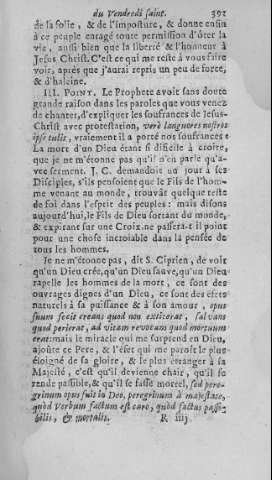 du Vendredi saint. 391
de la folie, & de l'imposture, & donne enfin
à ce peuple enragé toute permission d'ôter la
vie, aussi bien que la liberté & l'honneur à
Jesus Christ. C'est ce qui me reste à vous faire
voir, aprés que j'aurai repris un peu de force,
& d'haleine.
III. POINT. Le Prophete avoit sans doute
grande raison dans les paroles que vous venez
de chanter, d'expliquer les souffrances de Jesus-
Christ avec protestation, verè languores nostros
ipse tulit, vraiement il a porté nos souffrances :
La mort d'un Dieu étant si dificile à croire,
que je ne m'étonne pas qu'il n'en parle qu'a-
vec serment. J. C. demandoit un jour à ses
Disciples, s'ils pensoient que le Fils de l'hom-
me venant au monde, trouvât quelque reste
de foi dans l'esprit des peuples : mais disons
aujourd'hui, le Fils de Dieu sortant du monde,
& expirant sur une Croix, ne passera-t il point
pour une chose incroiable dans la pensée de
tous les hommes.
Je ne m'étonne pas, dit S. Ciprien, de voir
qu'un Dieu crée, qu'un Dieu sauve, qu'un Dieu
rapelle les hommes de la mort, ce sont des
ouvrages dignes d'un Dieu, ce sont des éfets
naturels à sa puissance & à son amour, opus
suum fecit creans quod non extiterat, salvans
quod perierat, ad vitam revocans quod mortuum
erat: mais le miracle qui me surprend en Dieu,
ajoûte ce Pere, & l'éfet qui me paroît le plus
éloigné de sa gloire, & le plus étranger à sa
Majesté, c'est qu'il devienne chair, qu'il se
rende passible, & qu'il se fasse mortel, sed pere-
grinum opus fuit in Deo, peregrinum à majestate,
quòd Verbum factum est caro, quòd factus passi-
bilis, & mortalis. R iiij